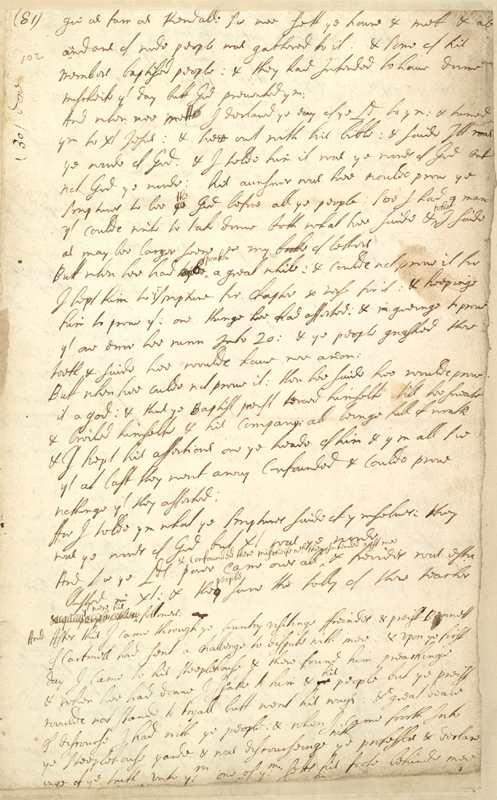 (81)
102
(80) done
give as farr as Kendall: soe wee sett ye houre & mett &
andance of rude people was gathered to it: & some of his
members baptised people: & they had Intended to have donne
mischeife yt day butt God prevented ym:
And when wee mett I declared ye day of ye Ld to ym: & turned
ym to Xt Jesus: & hee out with his bible: & saide Itt was
ye worde of God: & I tolde him it was ye words of God butt
not God ye worde: his aunswer was hee woulde prove ye
scriptures to bee the God before all ye people: soe I had a man
yt coulde write to take donne both what hee saide & what I saide
as may bee larger seene in my booke of letters
But when hee had spoaken a great while: & coulde not prove it for
I kept him to scripture for chapter & verse for it: & keepinge
him to prove yt: one thinge hee had asserted: & in goeinge to prove
yt one error hee runn Into 20: & ye people gnashed there
teeth & saide hee woulde have mee anon:
But when hee coulde not prove it: then hee saide hee woulde prove
it a god: & that ye Baptist preist toiled himselfe till hee sweate
& broiled himselfe & his company: all beinge full of wrath
& I kept his assertions one ye heade of him & ym all soe
yt at last they went away confounded & coulde prove
nothinge yt they asserted:
And I tolde ym what ye scriptures saide of ymselves: they
was ye words of God but Xt was ye worde
& confounded there mischeife wch they Intended against mee
And soe ye Lds power came over all, & freindes was esta
blisht in Xt: & the people sawe the folly of there teacher
were his followers:
And After this I came through ye cuntry visitinge freindes & preist Bennett
of Cartmell had sent a challenge to dispute with mee: & upon ye first
day I came to his steeplehouse & there found him preachinge
& when hee had donne I spake to him & his people butt ye preist
woulde nor stande to tryall butt went his ways: & a great deale
of discourse I had with ye people: & when I came foorth Into
ye steeplehouse yarde & was discourseinge with ye professors & declare
inge of ye truth unto ym one of ym sett his foote behinde mee